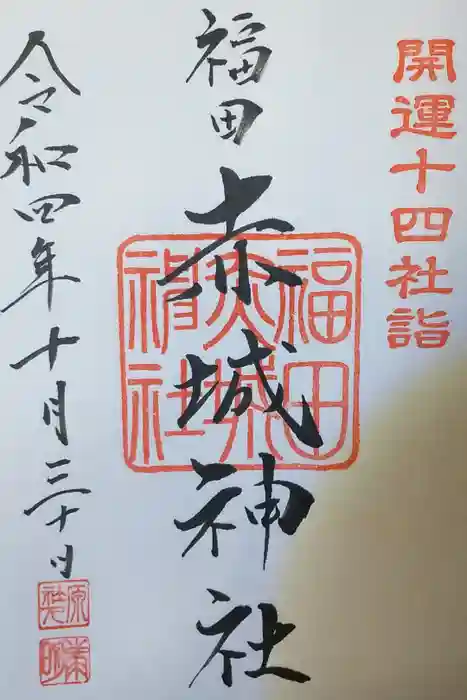 開運十四社詣
福田
赤城神社
福田
赤城
神社
令和四年十月三十日